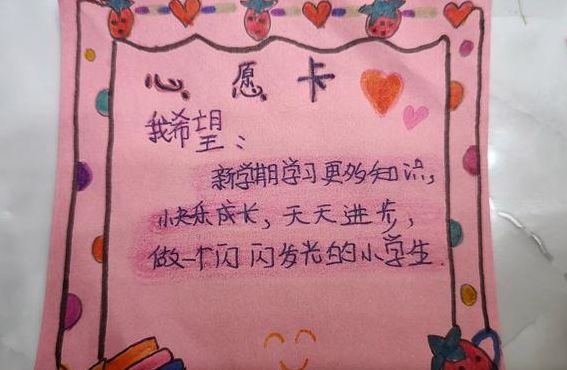 心愿卡
我希望：
新学期学习更多知识，
快乐成长，天天进步，
做一个闪闪发光的小学生